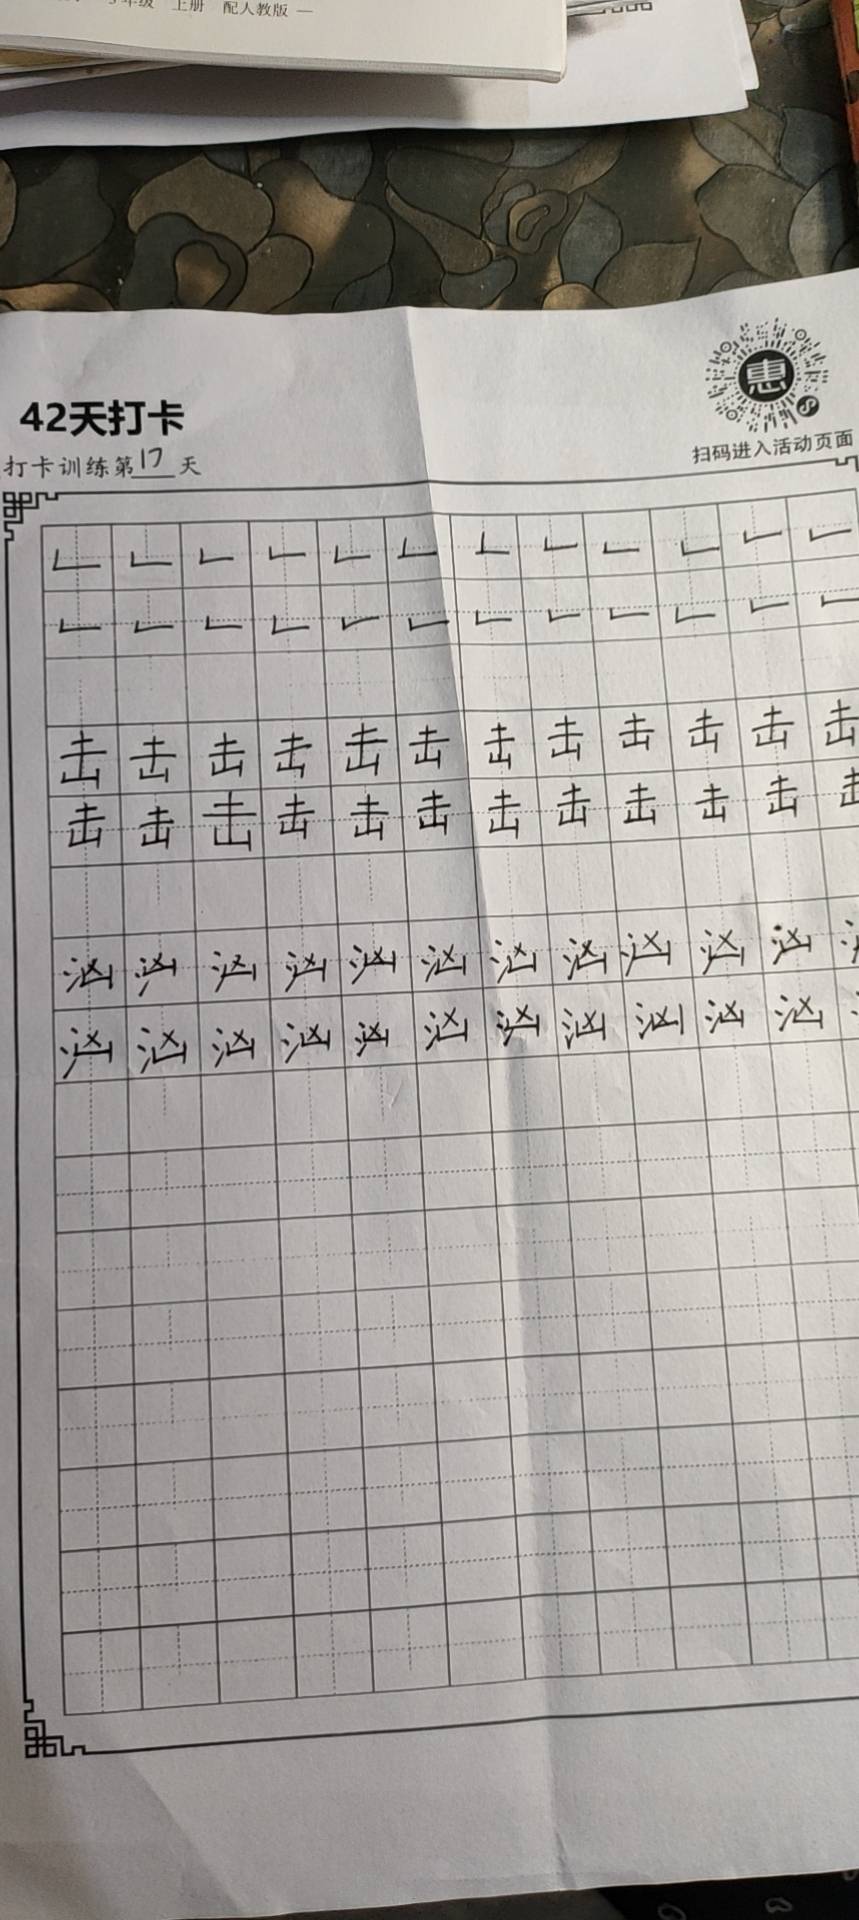 年级 上册 配人教版 —
惠
42天打卡
扫码进入活动页面
打卡训练第17天
𠃊 𠃊 𠃊 𠃊 𠃊 𠃊 𠃊 𠃊 𠃊 𠃊 𠃊 𠃊
𠃊 𠃊 𠃊 𠃊 𠃊 𠃊 𠃊 𠃊 𠃊 𠃊 𠃊 𠃊
击 击 击 击 击 击 击 击 击 击 击 击
击 击 击 击 击 击 击 击 击 击 击 击
汹 汹 汹 汹 汹 汹 汹 汹 汹 汹 汹
汹 汹 汹 汹 汹 汹 汹 汹 汹 汹 汹